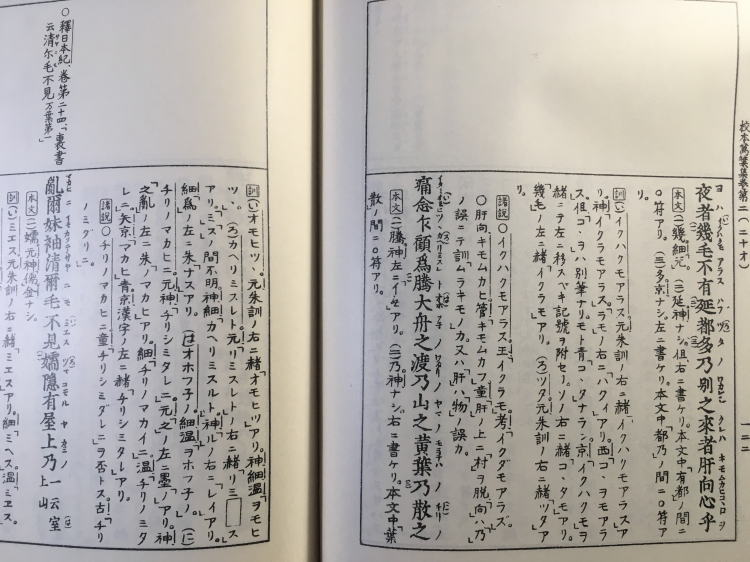 校本萬葉集卷第二(二十オ)
一二二
夜者幾毛不有延都多乃別之來者肝向心乎
〔本文〕(一)幾細冗。(二)延神ナシ。但右ニ書ケリ。本文中「有都」ノ間ニ
〇符アリ。(三)多京ナシ。左ニ書ケリ。本文中「都乃」ノ間ニ〇符ア
リ。
〔訓〕(い)イクハクモアラス元朱訓ノ右ニ緒「イクハクモアラスア
リ。神「イクラモアラス」。「ラモ」ノ右ニ「ハクイ」アリ。西「コ、ヲモアラ
ス」。「但」コ、ヲハ別筆ナリモト青「コ、タナラン」。京「イクハクモヲ
緒ニテ左ニ移スベキ記號ヲ附セリ。ソノ右ニ緒「コ、タモアリ。
幾毛ノ左ニ緒「イクラモアリ。(ろ)ツタ元朱訓ノ右ニ緒「ツタア
リ。
〔諸說〕〇イクハクモアラス。王イクラモ。考イクダモアラズ。
〇肝向キモムカヒ。管キモムカフ。童「肝ノ上ニ「村」ヲ脫。「向」ハ「乃」
ノ誤ニテ訓ムラキモノカ。又「肝」ハ「物」ノ誤カ。
痛念乍顧爲騰大舟之渡乃山之黄葉乃散之
〔本文〕(一)騰神左ニ「イセアリ。(二)乃神ナシ。右ニ書ケリ。本文中「葉
散」ノ間ニ〇符アリ。
〔訓〕(い)オモヒツ、元朱訓ノ右ニ緒「オモヒツ」アリ。神細温「ヲモヒ
ツ、」。(ろ)カヘリミスレト元「リミスレト」ノ右ニ緒「リミ□ス」
アリ。「ミス」ノ間不明。神細「カヘリミスルト」。神「ル」ノ右ニ「レイ」アリ。
細「爲」ノ左ニ「朱ナス」アリ。(は)オホフ子ノ。細温「ヲホフ子ノ」。(に)
チリノマカヒニ元神「チリシミタレニ」。元「之」ノ左ニ墨「ノ」アリ。神
「之亂」ノ左ニ朱「ノマカヒ」アリ。細「チリノマカイニ」。温「チリノミタ
レニ」。矢京「マカヒ」青。京漢字ノ左ニ緒「チリシミタレ」アリ。
〔諸說〕〇チリノマカヒニ。童チリシミダレニヲ否トス。古「チリ
ノミダリニ」。
亂爾妹袖清爾毛不見嬬隱有屋上乃 一云室上山
〔本文〕(一)嬬元神儀金ナシ。
〔訓〕(い)ミエス元朱訓ノ右ニ緒「ミエスアリ。細「ミヘス」。温「ミエス。
〇釋日本紀、卷第二十四、「裏書
云清尒毛不見 万葉第一